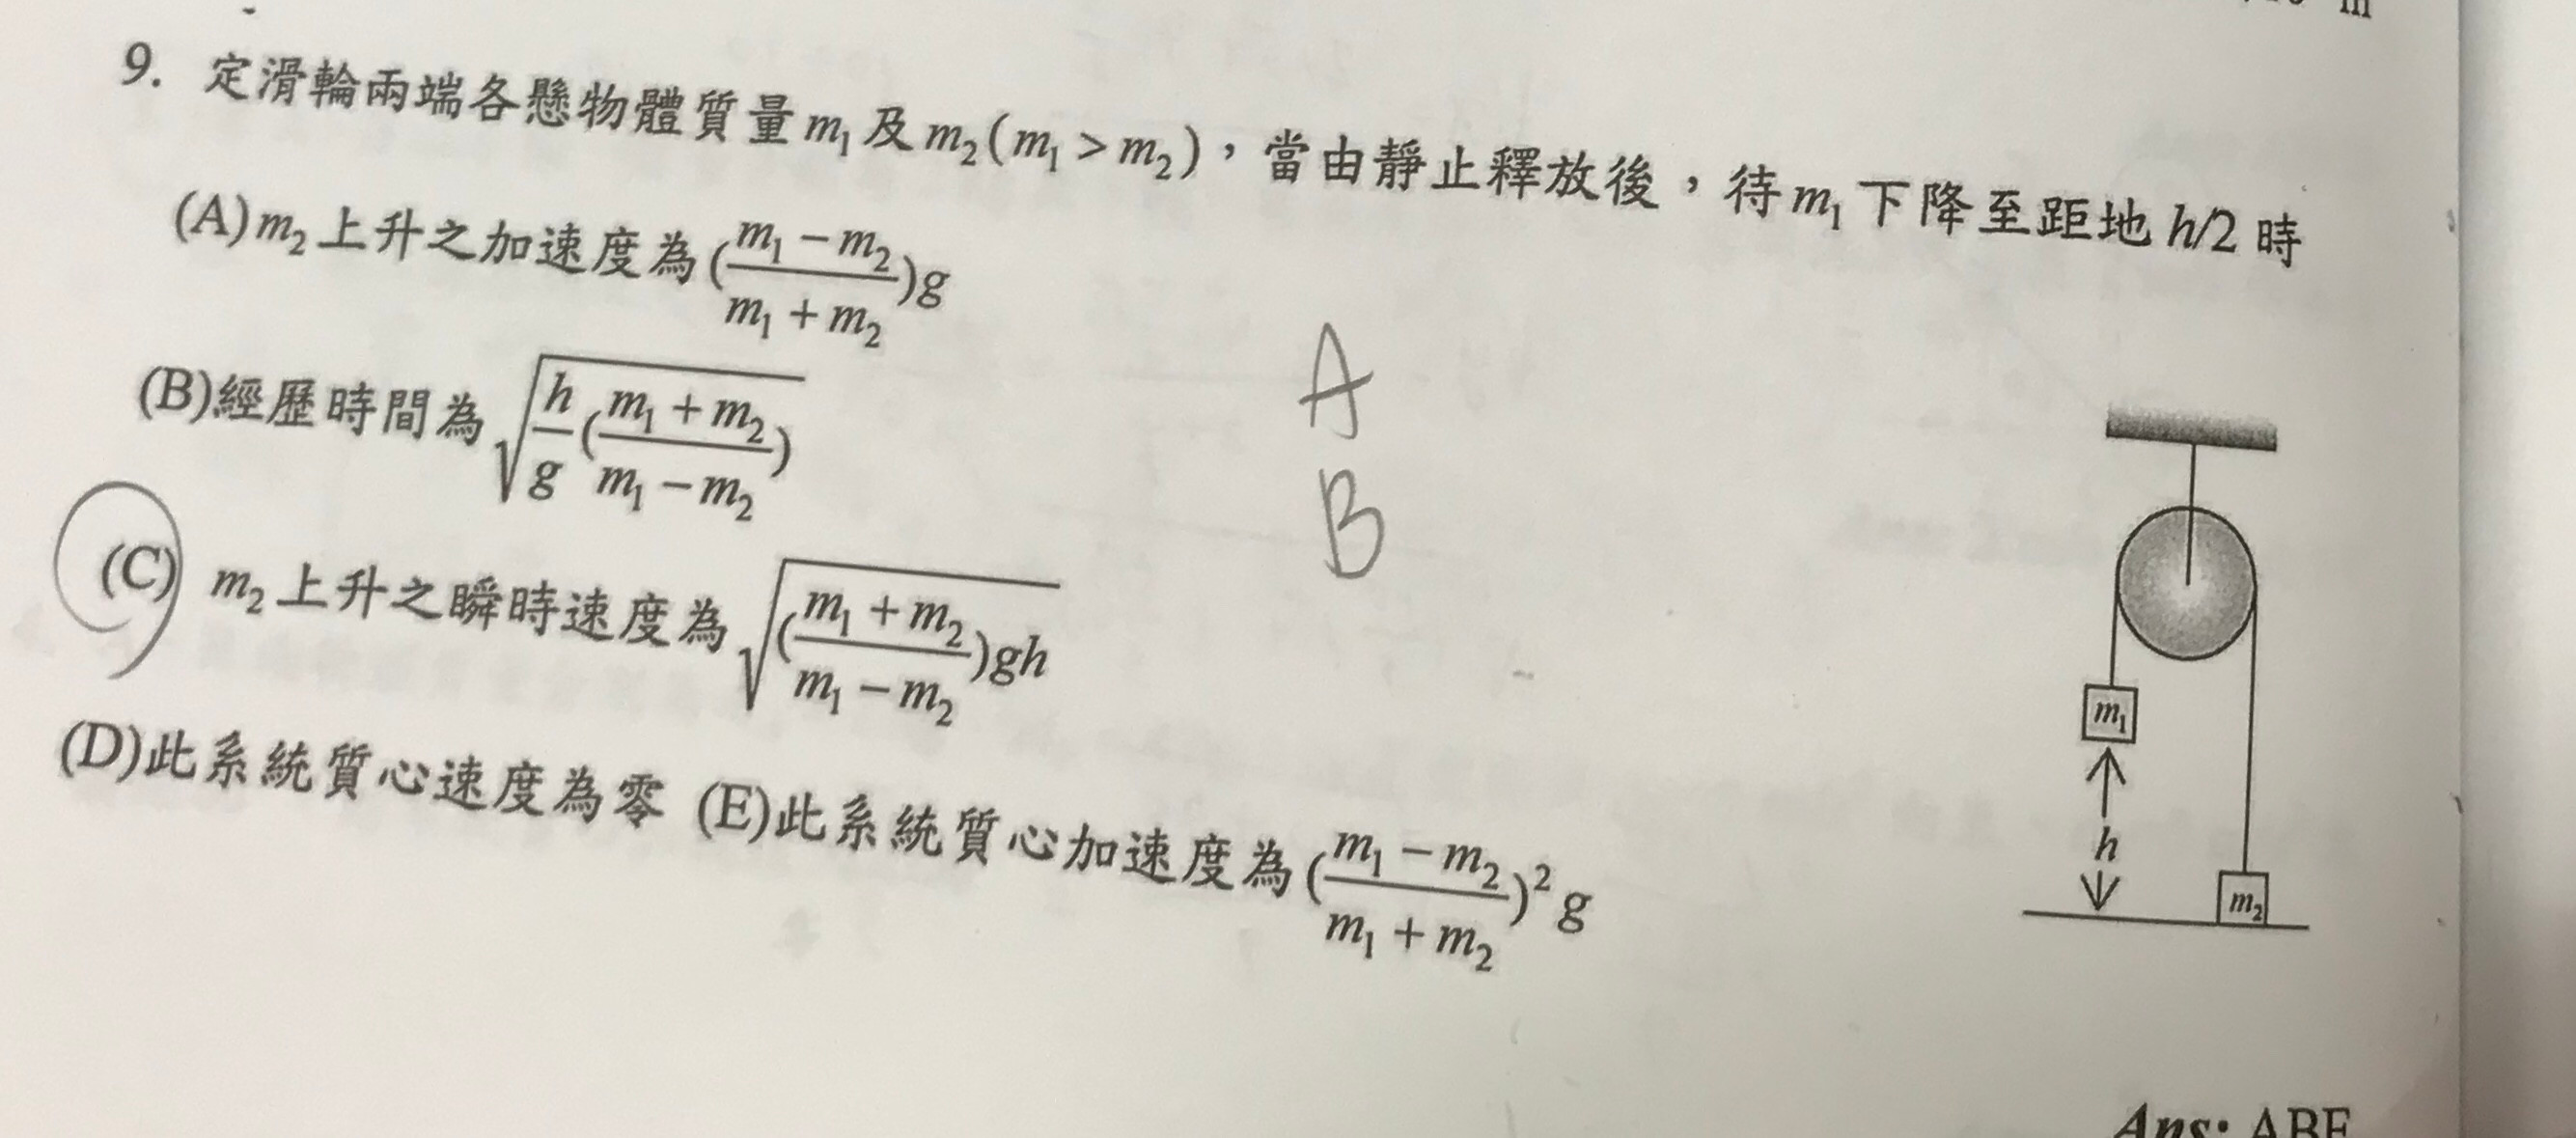 9. 定滑輪兩端各懸物體質量 m₁ 及 m₂ ( m₁ > m₂ )，當由靜止釋放後，待 m₁ 下降至距地 h/2 時
(A) m₂ 上升之加速度為 ((m₁ − m₂)/(m₁ + m₂))g
(B)經歷時間為 √((h/g)((m₁ + m₂)/(m₁ − m₂)))
(C) m₂ 上升之瞬時速度為 √(((m₁ + m₂)/(m₁ − m₂))gh)
(D)此系統質心速度為零 (E)此系統質心加速度為 ((m₁ − m₂)/(m₁ + m₂))² g
A
B
m₁
h
m₂
Ans: ABE